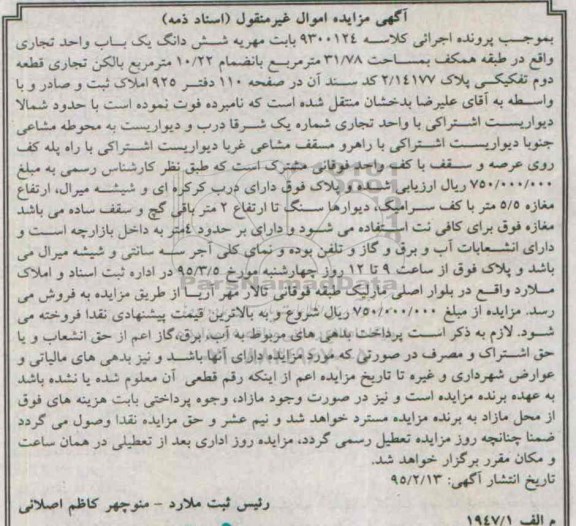 آگهی مزایده اموال غیرمنقول (اسناد ذمه)
بموجب پرونده اجرائی کلاسه ۹۳۰۰۱۲۴ بابت مهریه شش دانگ یک باب واحد تجاری
واقع در طبقه همکف بمساحت ۳۱/۷۸ مترمربع بانضمام ۱۰/۲۲ مترمربع بالکن تجاری قطعه
دوم تفکیکی پلاک ۲/۱۴۱۷۷ کد سند آن در صفحه ۱۱۰ دفتر ۹۲۵ املاک ثبت و صادر و با
واسطه به آقای علیرضا بدخشان منتقل شده است که نامبرده فوت نموده است با حدود شمالا
دیواریست اشتراکی با واحد تجاری شماره یک شرقا درب و دیواریست به محوطه مشاعی
جنوبا دیواریست اشتراکی با راهرو مسقف مشاعی غربا دیواریست اشتراکی با راه پله کف
روی عرصه و سقف با کف واحد فوقانی مشترک است که طبق نظر کارشناس رسمی به مبلغ
۷۵۰/۰۰۰/۰۰۰ ریال ارزیابی شده و پلاک فوق دارای درب کرکره ای و شیشه میرال، ارتفاع
مغازه ۵/۵ متر با کف سرامیک، دیوارها سنگ تا ارتفاع ۲ متر باقی گچ و سقف ساده می باشد
مغازه فوق برای کافی نت استفاده می شود و دارای بر حدود ٤متر به داخل بازارچه است و
دارای انشعابات آب و برق و گاز و تلفن بوده و نمای کلی آجر سه سانتی و شیشه میرال می
باشد و پلاک فوق از ساعت ۹ تا ۱۲ روز چهارشنبه مورخ ۹۵/۳/۵ در اداره ثبت اسناد و املاک
ملارد واقع در بلوار اصلی مارلیک طبقه فوقانی تالار مهر آریا از طریق مزایده به فروش می
رسد. مزایده از مبلغ ۷۵۰/۰۰۰/۰۰۰ ریال شروع و به بالاترین قیمت پیشنهادی نقدا فروخته می
شود. لازم به ذکر است پرداخت بدهی های مربوط به آب، برق، گاز اعم از حق انشعاب و یا
حق اشتراک و مصرف در صورتی که مورد مزایده دارای آنها باشد و نیز بدهی های مالیاتی و
عوارض شهرداری و غیره تا تاریخ مزایده اعم از اینکه رقم قطعی آن معلوم شده یا نشده باشد
به عهده برنده مزایده است و نیز در صورت وجود مازاد، وجوه پرداختی بابت هزینه های فوق
از محل مازاد به برنده مزایده مسترد خواهد شد و نیم عشر و حق مزایده نقدا وصول می گردد
ضمنا چنانچه روز مزایده تعطیل رسمی گردد، مزایده روز اداری بعد از تعطیلی در همان ساعت
و مکان مقرر برگزار خواهد شد.
تاریخ انتشار آگهی: ۹۵/۲/۱۳
رئیس ثبت ملارد - منوچهر کاظم اصلانی
م الف ۱۹۴۷/۱
ParsNamadData